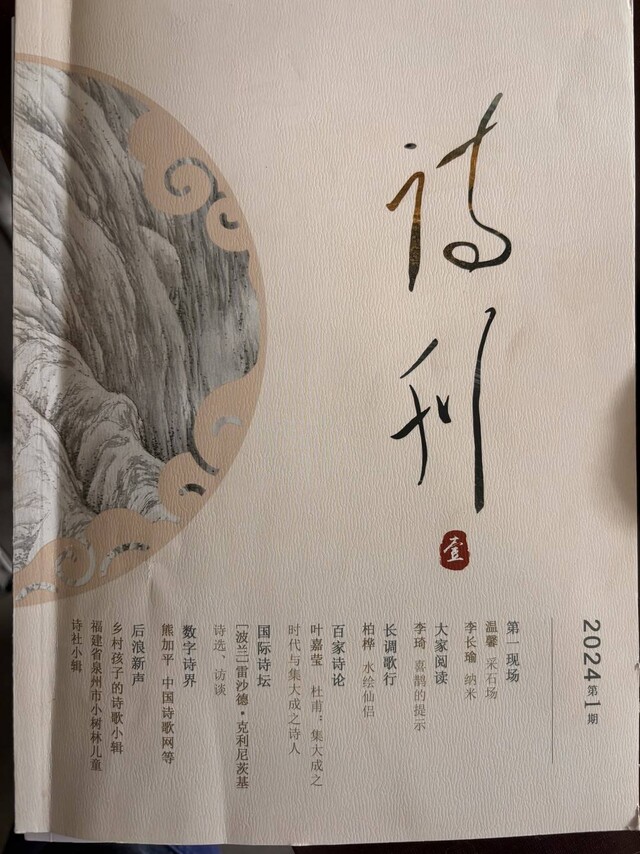 诗刊
壹
2024 第1期
第一现场
温馨 采石场
李长瑜 纳米
大家阅读
李琦 喜鹊的提示
长调歌行
柏桦 水绘仙侣
百家诗论
叶嘉莹 杜甫：集大成之
时代与集大成之诗人
国际诗坛
[波兰]雷沙德·克利尼茨基
诗选、访谈
数字诗界
熊加平 中国诗歌网等
后浪新声
乡村孩子的诗歌小辑
福建省泉州市小树林儿童
诗社小辑